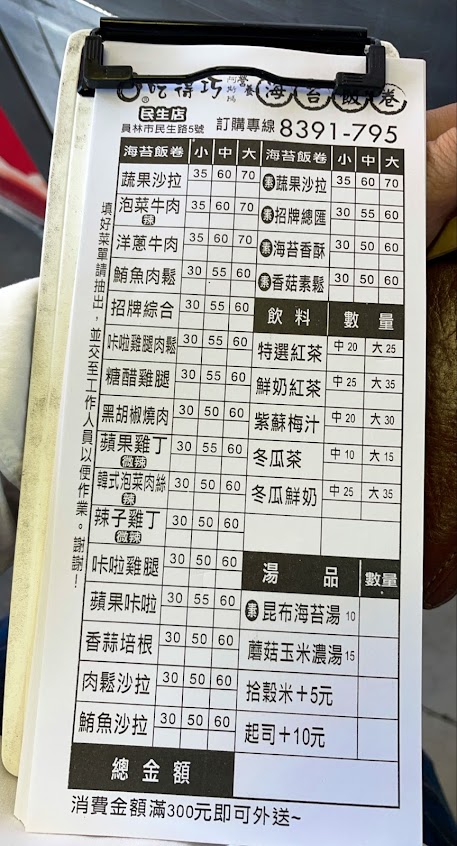 吃得巧 阿斯瑪 營養 海苔飯卷
民生店
員林市民生路5號 訂購專線 8391-795
海苔飯卷 小 中 大
蔬果沙拉 35 60 70
泡菜牛肉 辣 35 60 70
洋蔥牛肉 35 60 70
鮪魚肉鬆 30 55 60
招牌綜合 30 55 60
咔啦雞腿肉鬆 30 55 60
糖醋雞腿 30 55 60
黑胡椒燒肉 30 50 60
蘋果雞丁 微辣 30 55 60
韓式泡菜肉絲 辣 30 50 60
辣子雞丁 微辣 30 50 60
咔啦雞腿 30 50 60
蘋果咔啦 30 55 60
香蒜培根 30 50 60
肉鬆沙拉 30 50 60
鮪魚沙拉 30 50 60
總金額
海苔飯卷 小 中 大
素 蔬果沙拉 35 60 70
素 招牌總匯 30 55 60
素 海苔香酥 30 50 60
素 香菇素鬆 30 50 60
飲料 數量
特選紅茶 中20 大25
鮮奶紅茶 中25 大35
紫蘇梅汁 中20 大30
冬瓜茶 中10 大15
冬瓜鮮奶 中25 大35
湯品 數量
素 昆布海苔湯 10
蘑菇玉米濃湯 15
拾穀米+5元
起司+10元
填好菜單請抽出，並交至工作人員以便作業。謝謝！
消費金額滿300元即可外送~